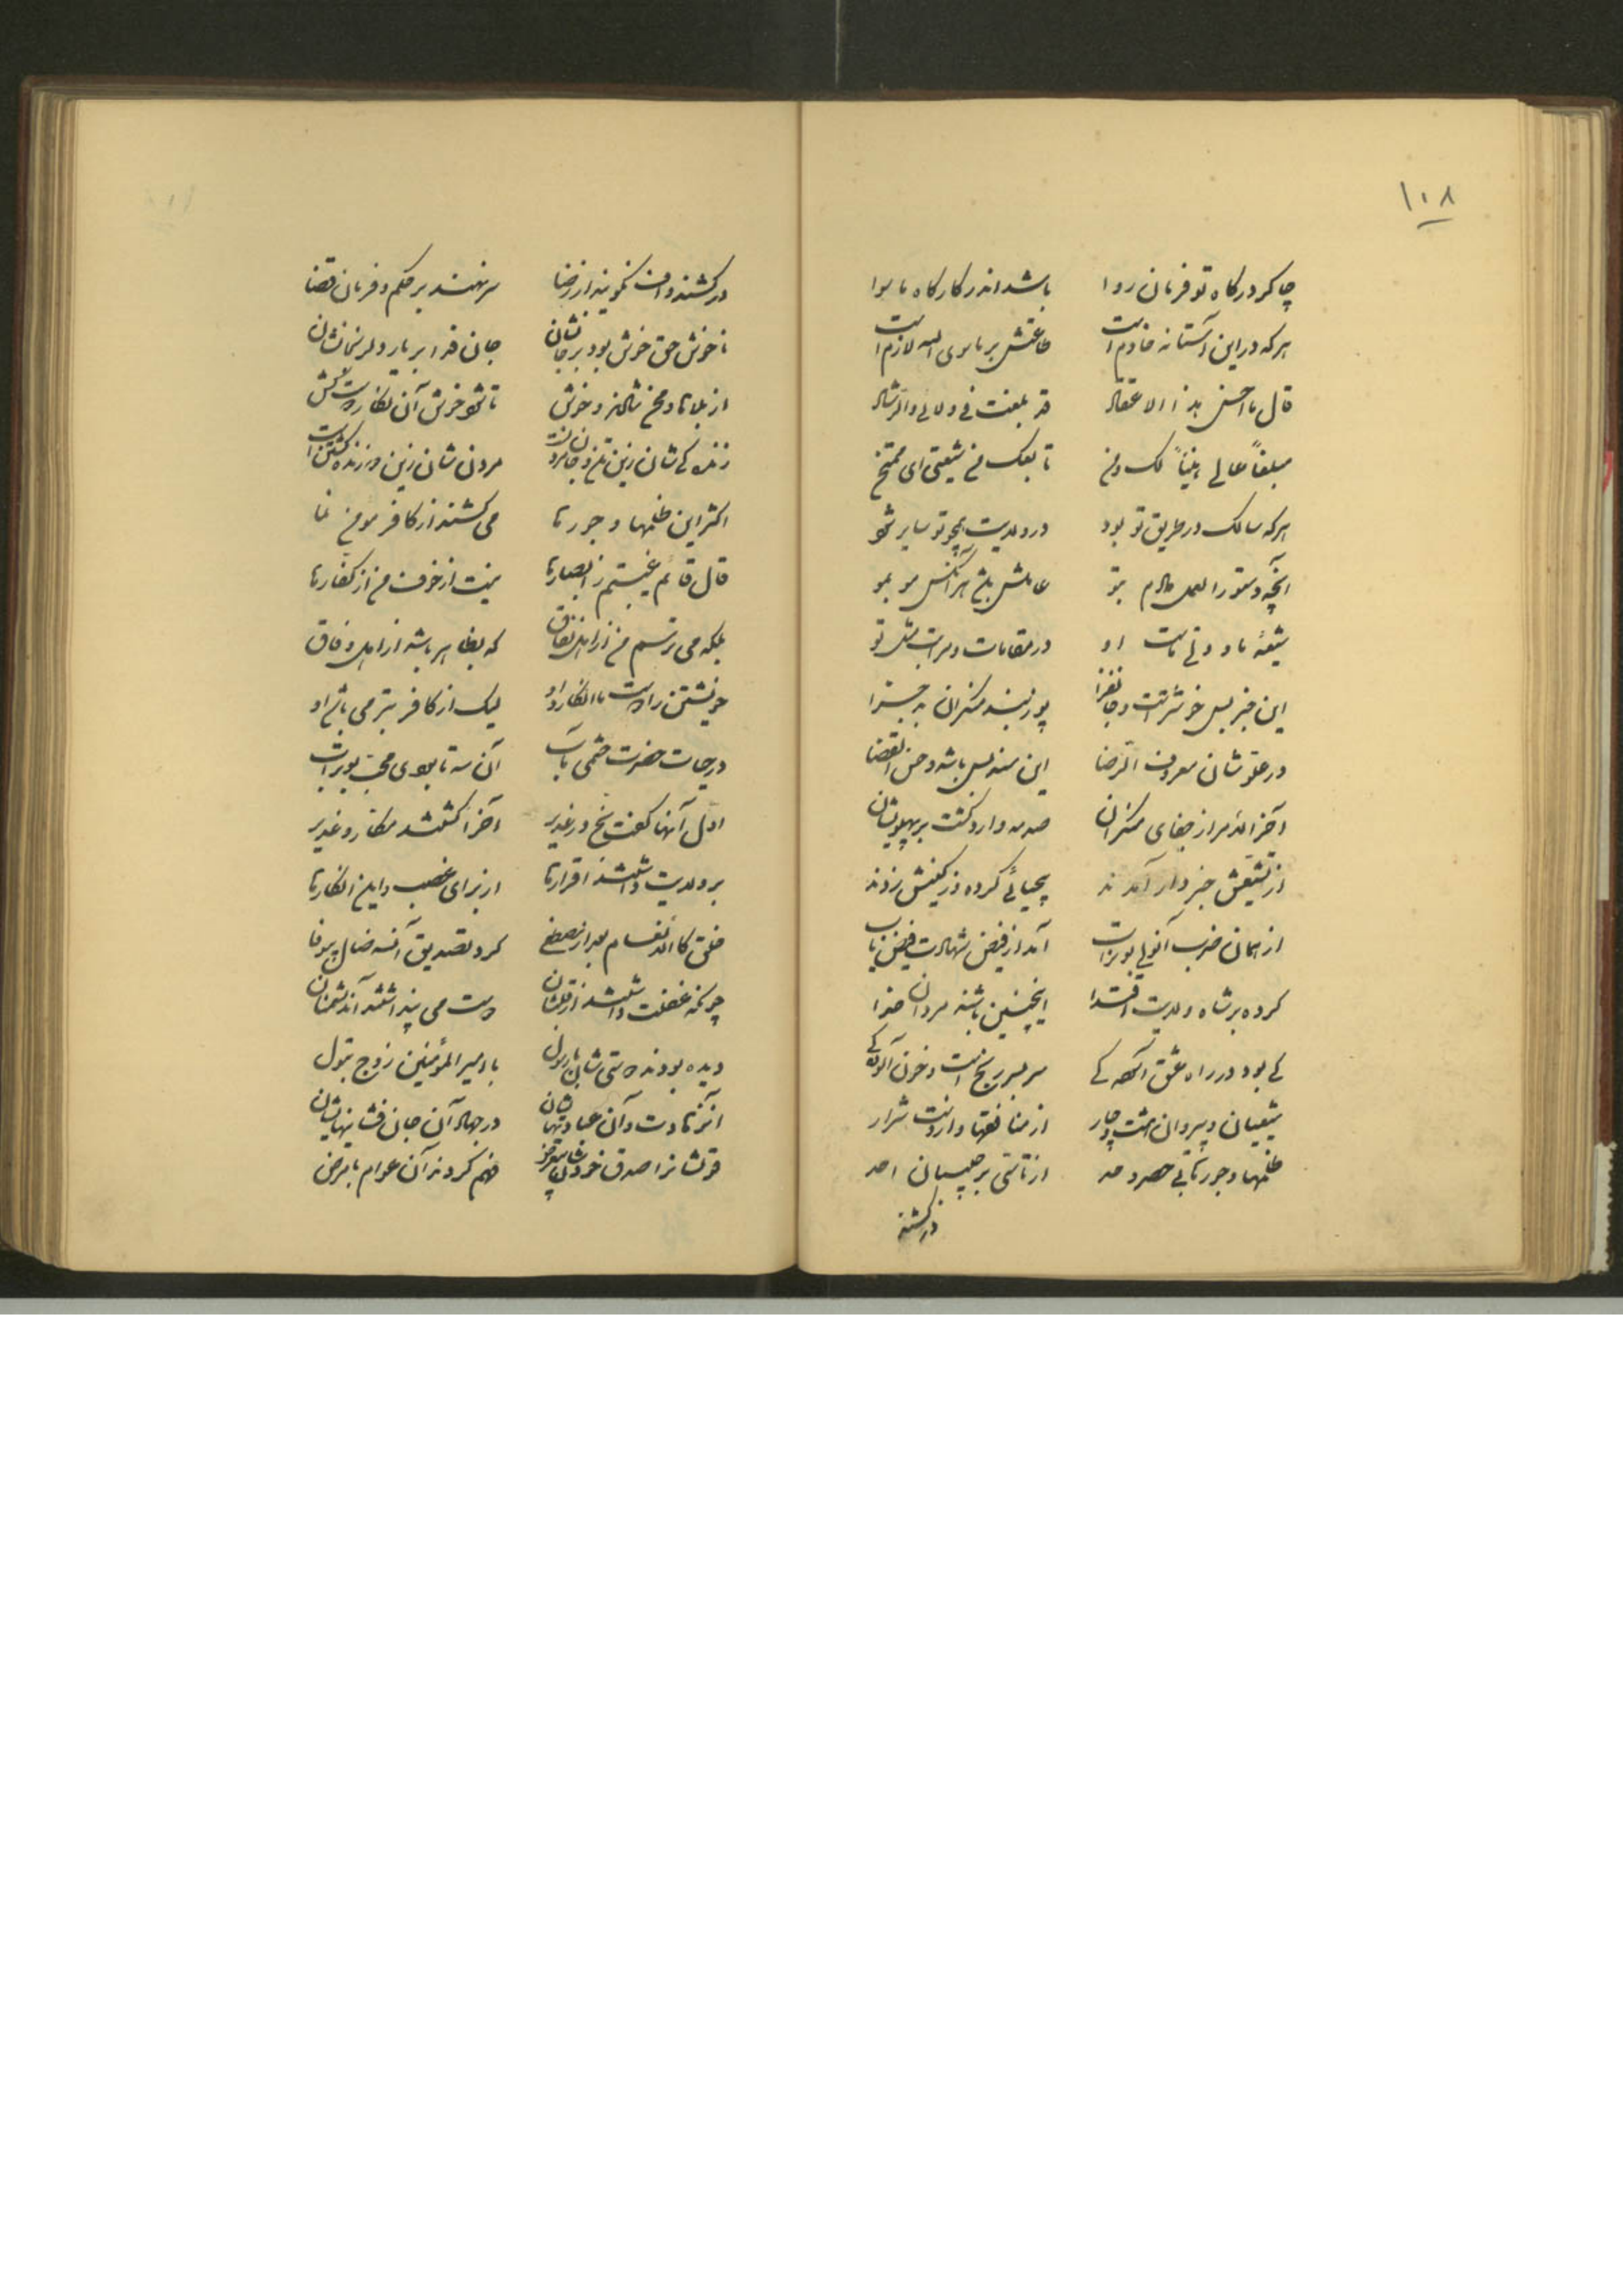 ۱۰۸
چاکر درگاه تو فرمان روا باشد اندر کارگاه ماسوا
هرکه در این آستانه خادم است طاعتش بر ماسوی الله لازم است
قال یا احسن بذا الاعتقاد قد بلغت فی ولائی والرشاد
مبلغاً عالی هنیئاً لک ومن تابعک من شیعتی ای ممتحن
هرکه سالک در طریق تو بود در ولایت همچو تو سایر شود
آنچه دستورالعمل دادم بتو عاملش باشد هر آنکس مو بمو
شیعهٔ ما و ولی ماست او در مقامات و مراتب مثل تو
این خبر بس خوشتر است و جانفزا
در علو شان معروف الرضا این سند بس باشد و حسن القضا
آخر الامر از جفای منکران صدمه وارد گشت بر پهلویشان
از تشیعش خبردار آمدند بیحیائی کرده در کینش زدند
از همان ضرب آنولی بوتراب آمد از فیض شهادت فیض یاب
کرده بر شاه ولایت اقتدا اینچنین باشند مردان خدا
کی بود در راه عشق آسودگی سر بسر رنج است و خون آلودگی
شیعیان و پیروان هشت و چار از منافقها و از دست شرار
ظلمها و جورهای بی حصر و حد از تأسی بر حبیبان احد
در کشند
در کشند و اف نگویند از رضا سر نهند بر حکم و فرمان قضا
ناخوش حق خوش بود بر جانشان جان فدا بر یار دلرنجانشان
از بلاها و محن شادند و خوش تا شود خوش آن نگار دست کش
زندگی شان زین تن و جان مردنست مردن شان زین و زنده گشتن است
اکثر این ظلمها و جورها می کشند از کافر مومن نما
قال قائم غیبتم ز ابصارها نیست از خوف من از کفارها
بلکه می ترسم من از اهل نفاق که بظاهر باشد از اهل وفاق
خویشتن را دوست با انکار او لیک از کافر بتر می باشد او
در حیات حضرت ختمی مآب آن سه تا بودی محب بوتراب
اول آنها گفت بخ در غدیر آخر گشتند مکار و غدیر
بر ولایت داشتند اقرارها از برای غصب و این انکارها
خلق کالانعام بعد از مصطفی کرد تصدیق آنسه ضال بیوفا
چونکه غفلت داشتند از قلبشان دوست می پنداشتند آن دشمنان
دیده بودند دوستی شان با رسول با امیرالمؤمنین زوج بتول
آنزهادت و آن عبادتهایشان در جهاد آن جان فشانیهایشان
فهم کردند آن عوام با مرض